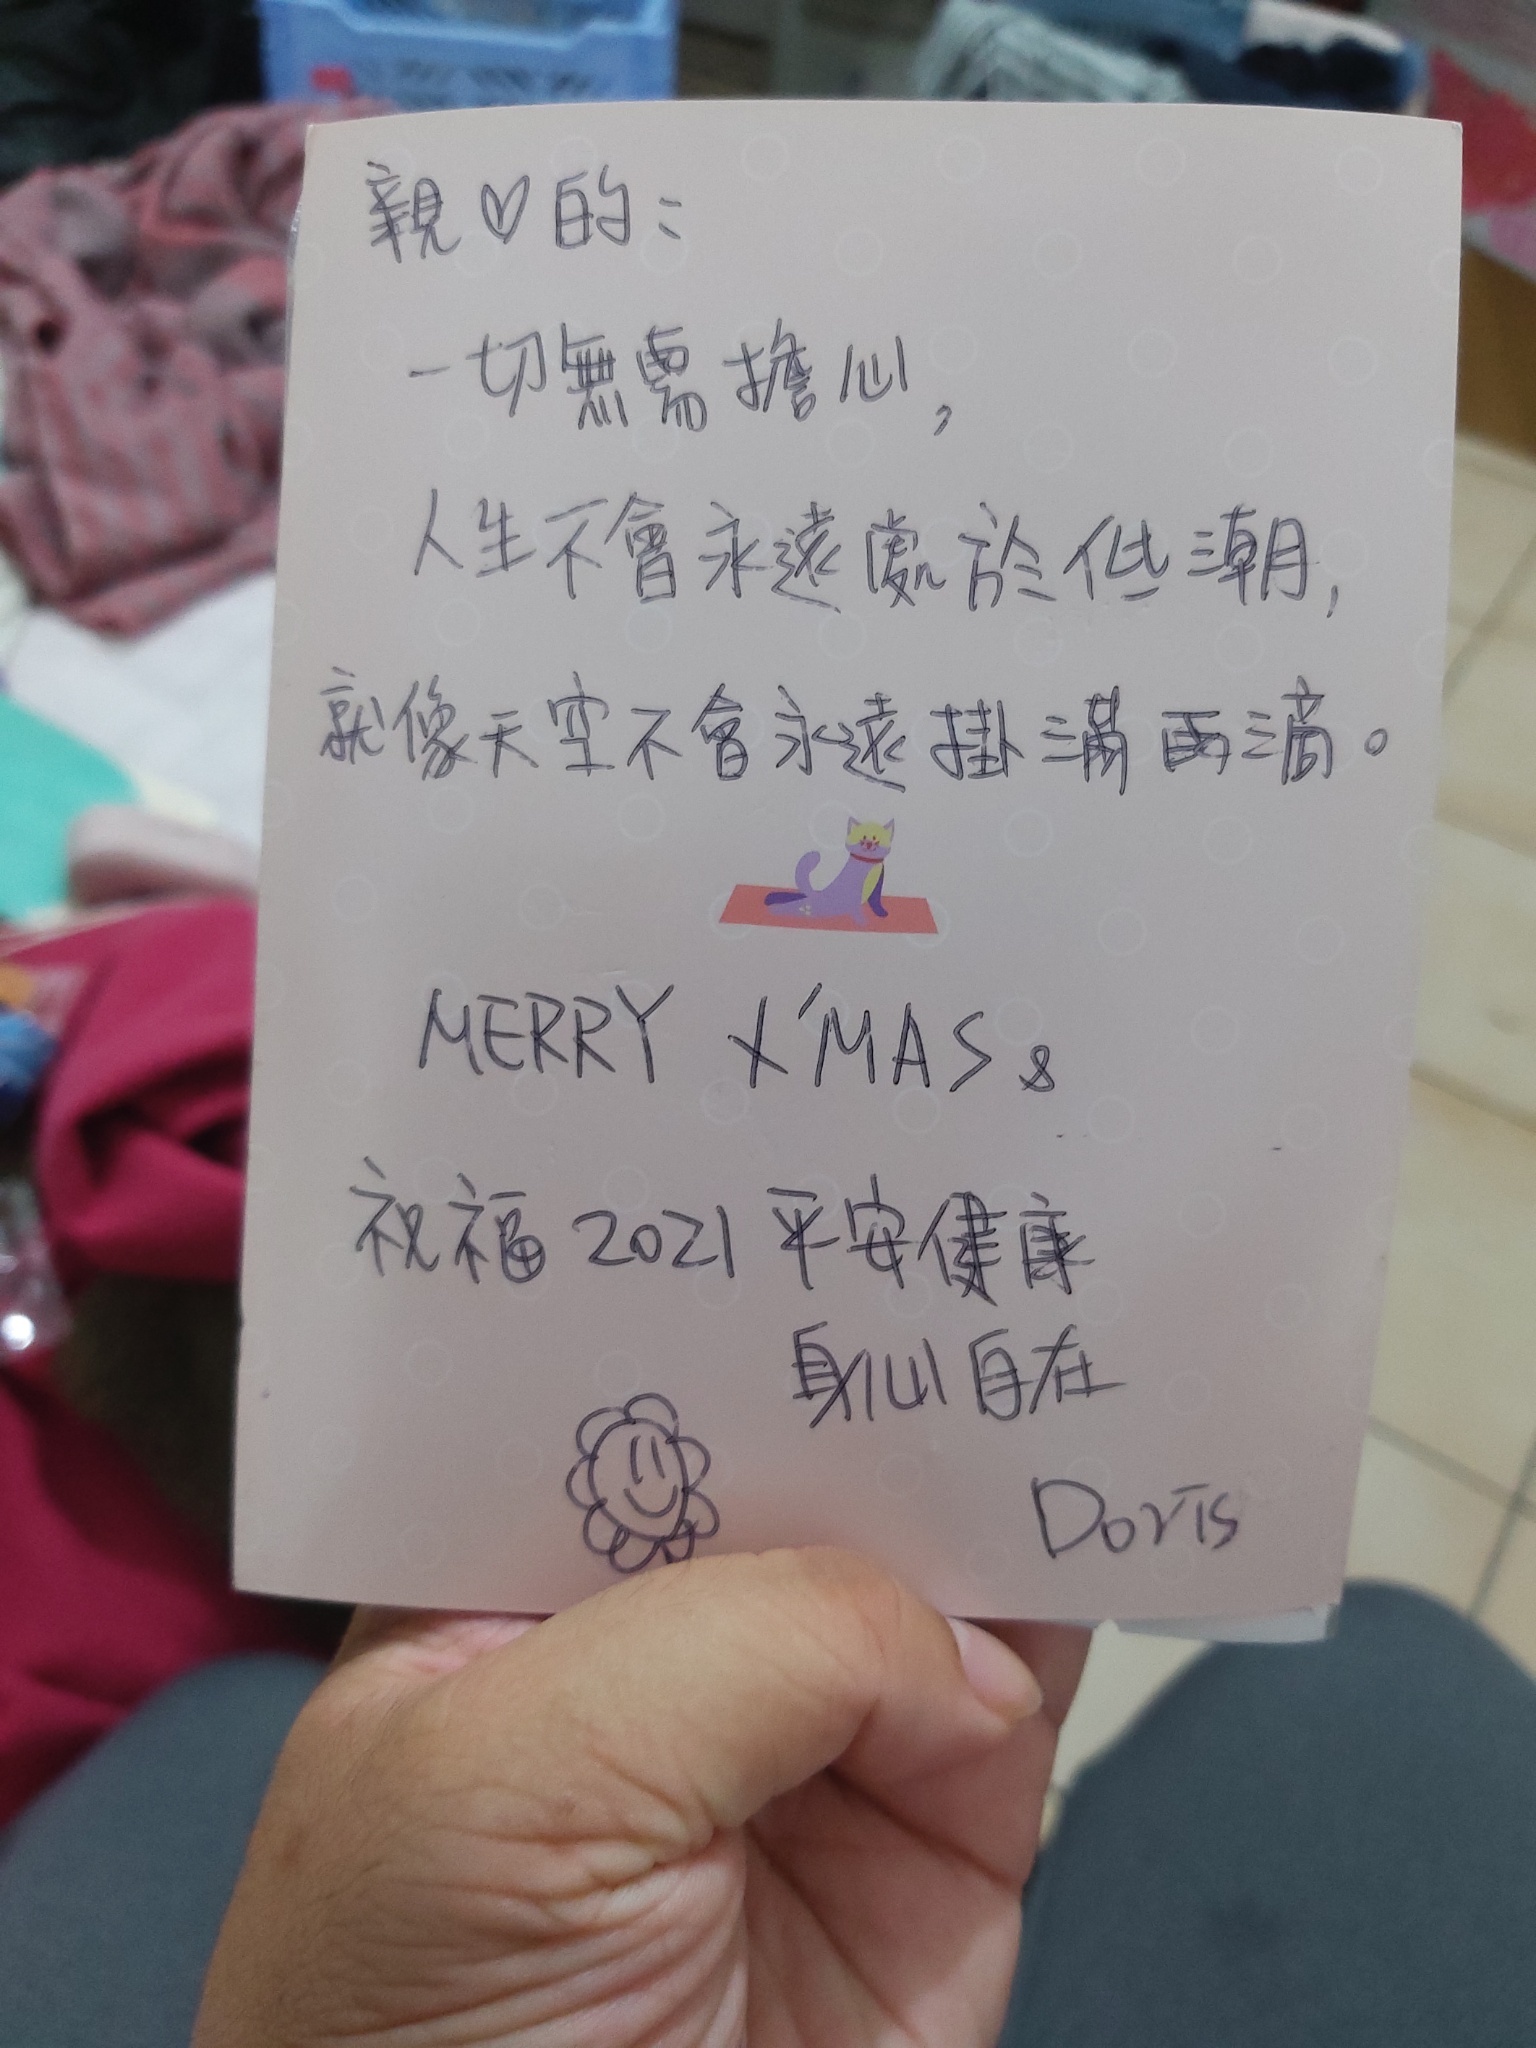 親♡的：
一切無需擔心，
人生不會永遠處於低潮，
就像天空不會永遠掛滿雨滴。
MERRY X'MAS &
祝福2021平安健康
身心自在
Doris